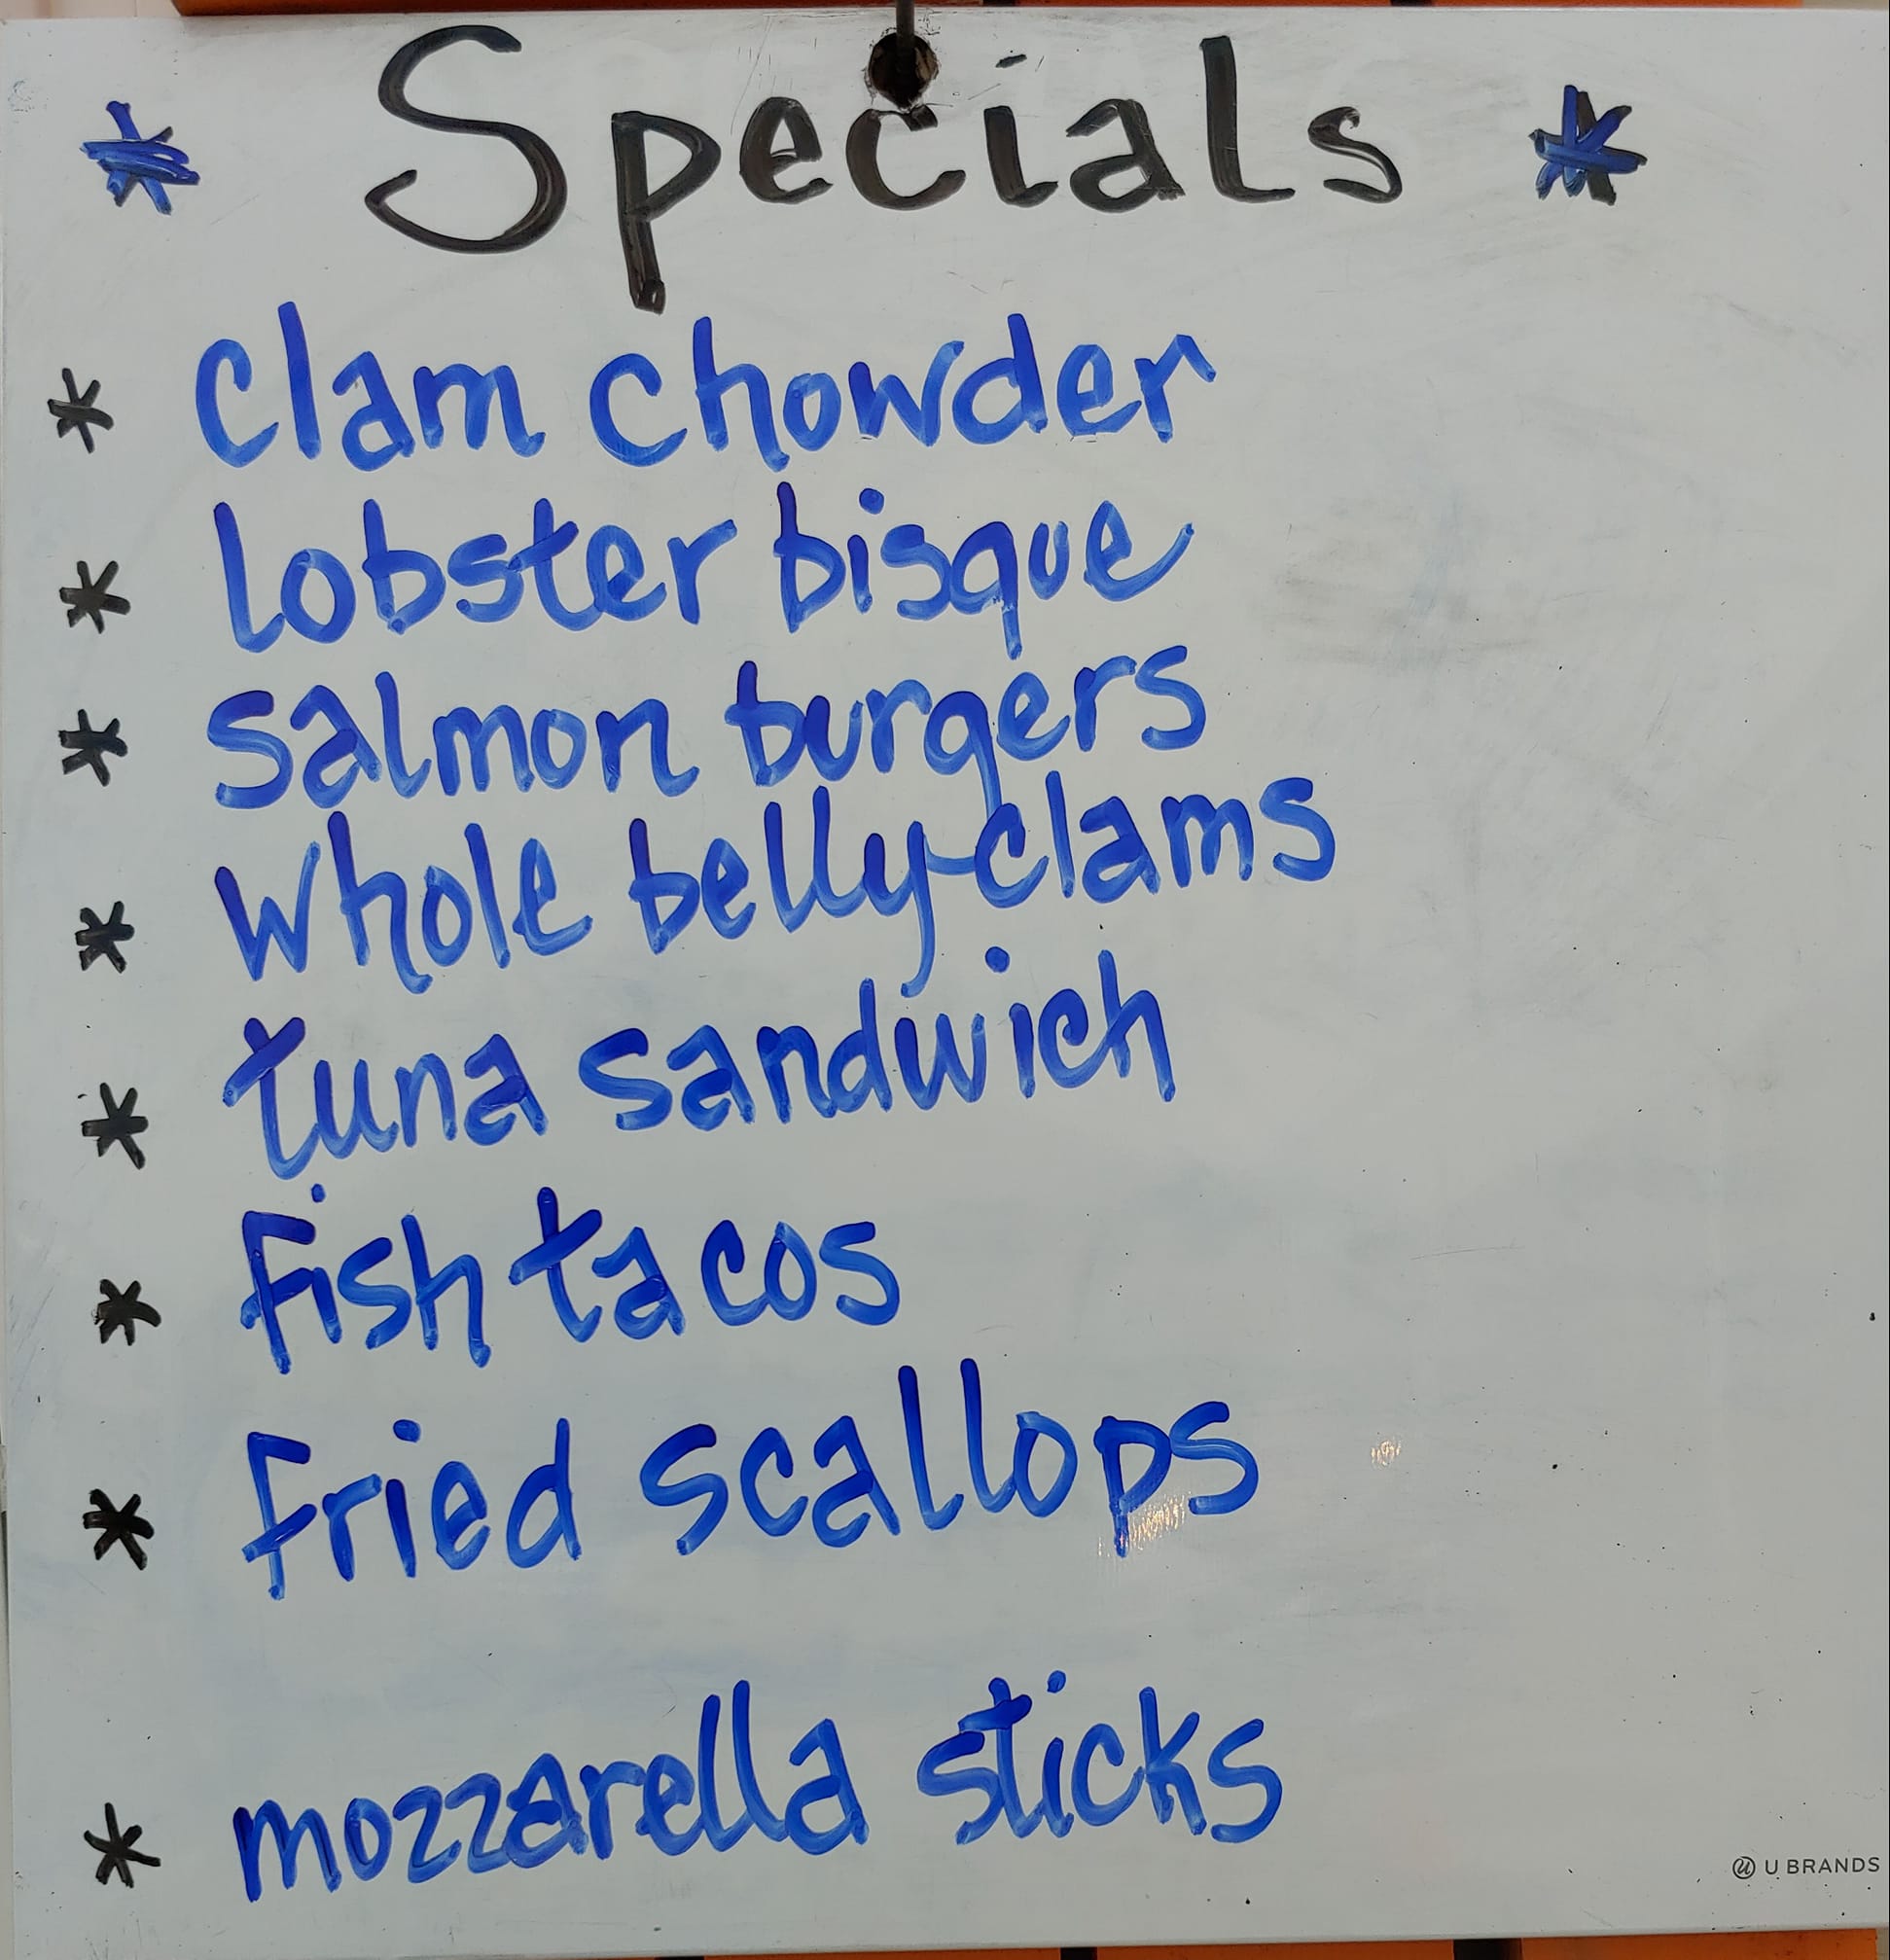 * Specials *
* Clam chowder
* Lobster bisque
* Salmon burgers
* Whole belly clams
* tuna sandwich
* Fish tacos
* Fried scallops
* mozzarella sticks
U BRANDS